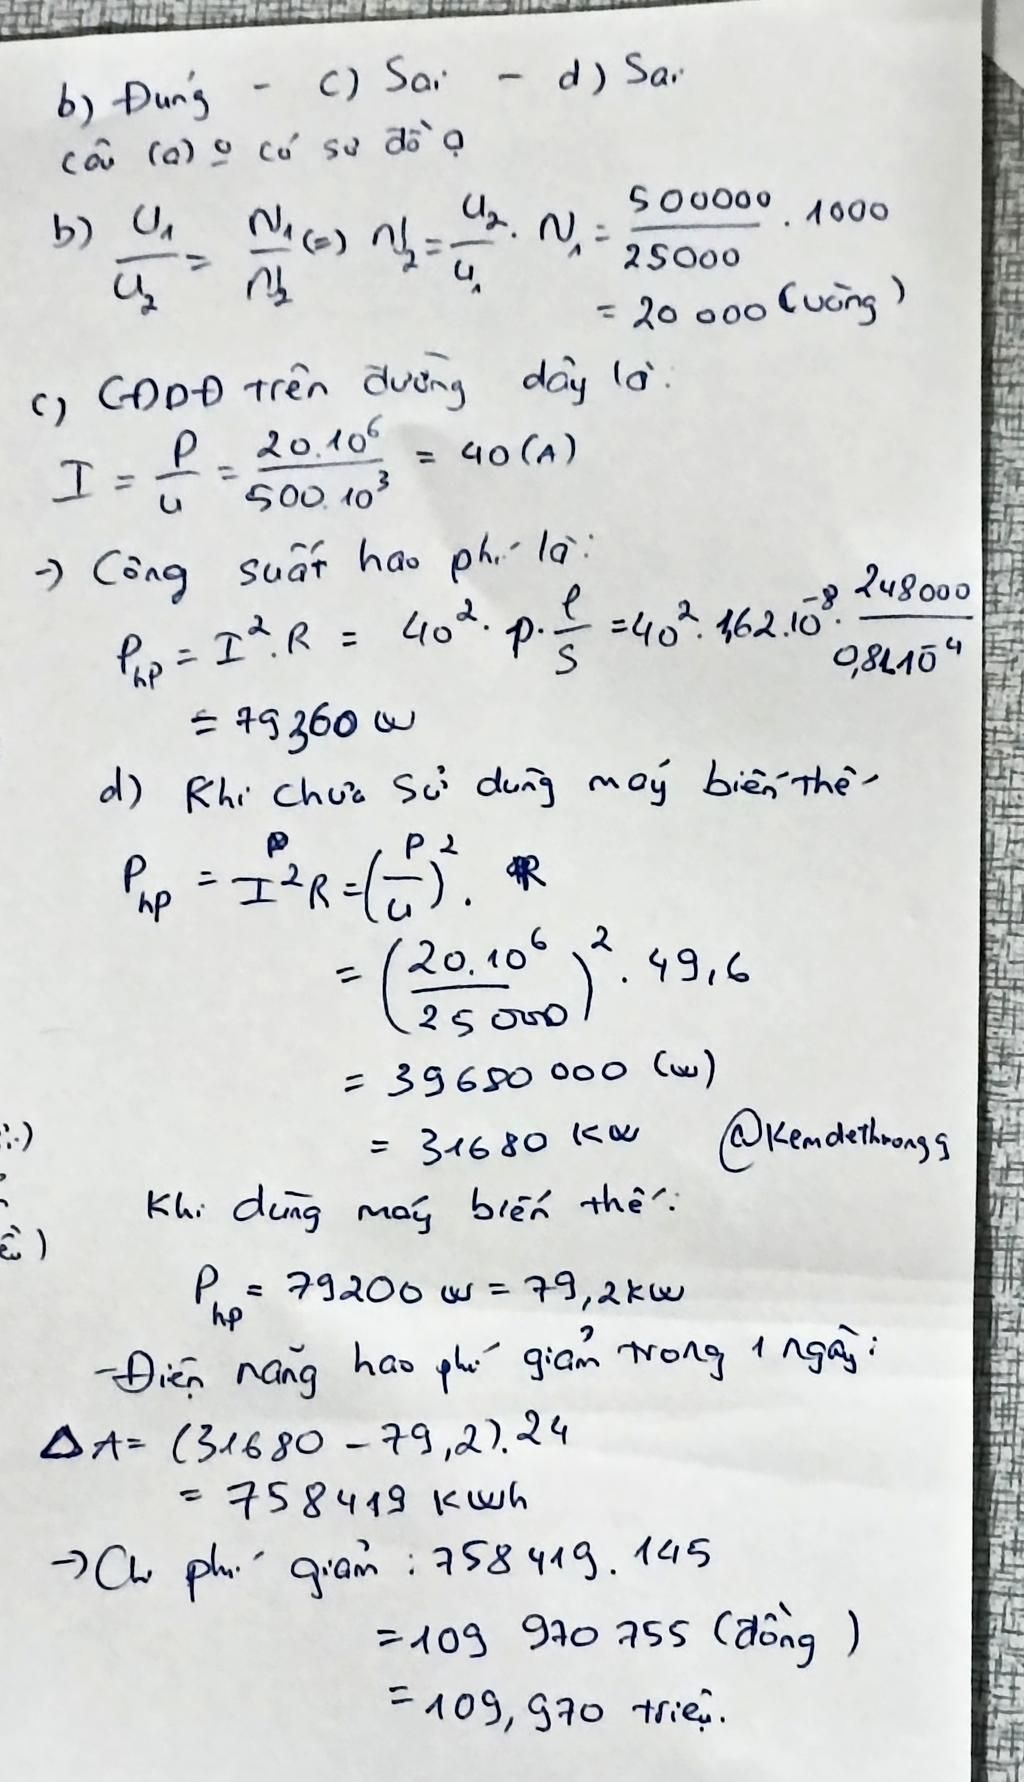 b) Đúng - c) Sai - d) Sai
câu (a) có sơ đồ ạ
b) U₁/U₂ = N₁/N₂ (=) N₂ = U₂/U₁ . N₁ = 500000/25000 . 1000
= 20 000 (vòng)
c) CĐDĐ trên đường dây là:
I = P/U = 20.10⁶/500.10³ = 40 (A)
→ Công suất hao phí là:
P_hp = I².R = 40². ρ. l/S = 40². 1,62.10⁻⁸. 248000/0,81.10⁻⁴
= 79360 W
d) Khi chưa sử dụng máy biến thế
P_hp = I²R = (P/U)². R
= (20.10⁶/25000)². 49,6
= 39680 000 (W)
= 31680 KW @Kemdethrongg
:)
Khi dùng máy biến thế:
)
P_hp = 79200 W = 79,2KW
- Điện năng hao phí giảm trong 1 ngày:
ΔA = (31680 - 79,2).24
= 758419 KWh
→ Chi phí giảm: 758419. 145
= 109 970 755 (đồng)
= 109,970 triệu.